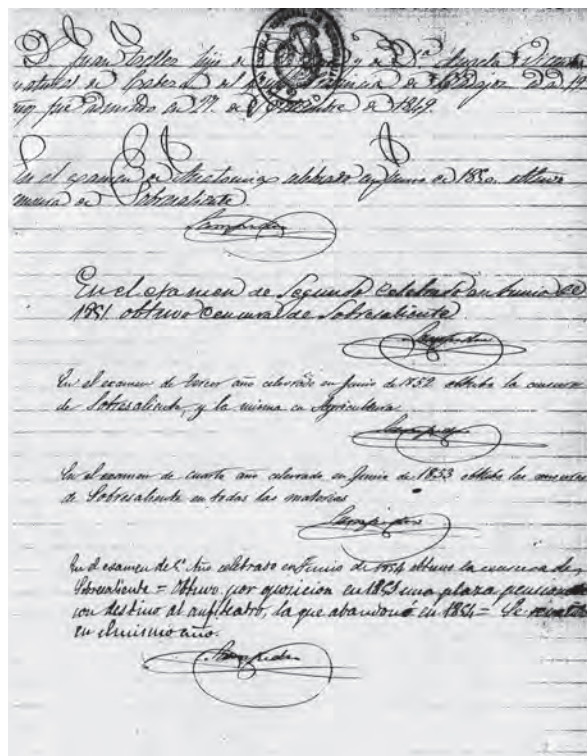 Dn. Juan Tellez hijo de y de Da. Angela Vicenta
natural de Cabeza del provincia de Badajoz
fue admitido en 27 de Setiembre de 1849.
En el examen de celebrado en Junio de 1850 obtuvo
censura de Sobresaliente
Sampedro
En el examen de Segundo celebrado en Junio de
1851 obtuvo censura de Sobresaliente.
Sampedro
En el examen de tercer año celevrado en Junio de 1852 obtubo la censura
de Sobresaliente, y la misma en Agricultura
Sampedro
En el examen de cuarto año celevrado en Junio de 1853 obtubo las censuras
de Sobresaliente en todas las materias
Sampedro
En el examen de 5º Año celebrado en Junio de 1854 obtuvo la censura de
Sobresaliente = Obtuvo por oposicion en 1853 una plaza pensionada
con destino al anfiteatro, la que abandonó en 1854 = Se
en el mismo año.
Sampedro